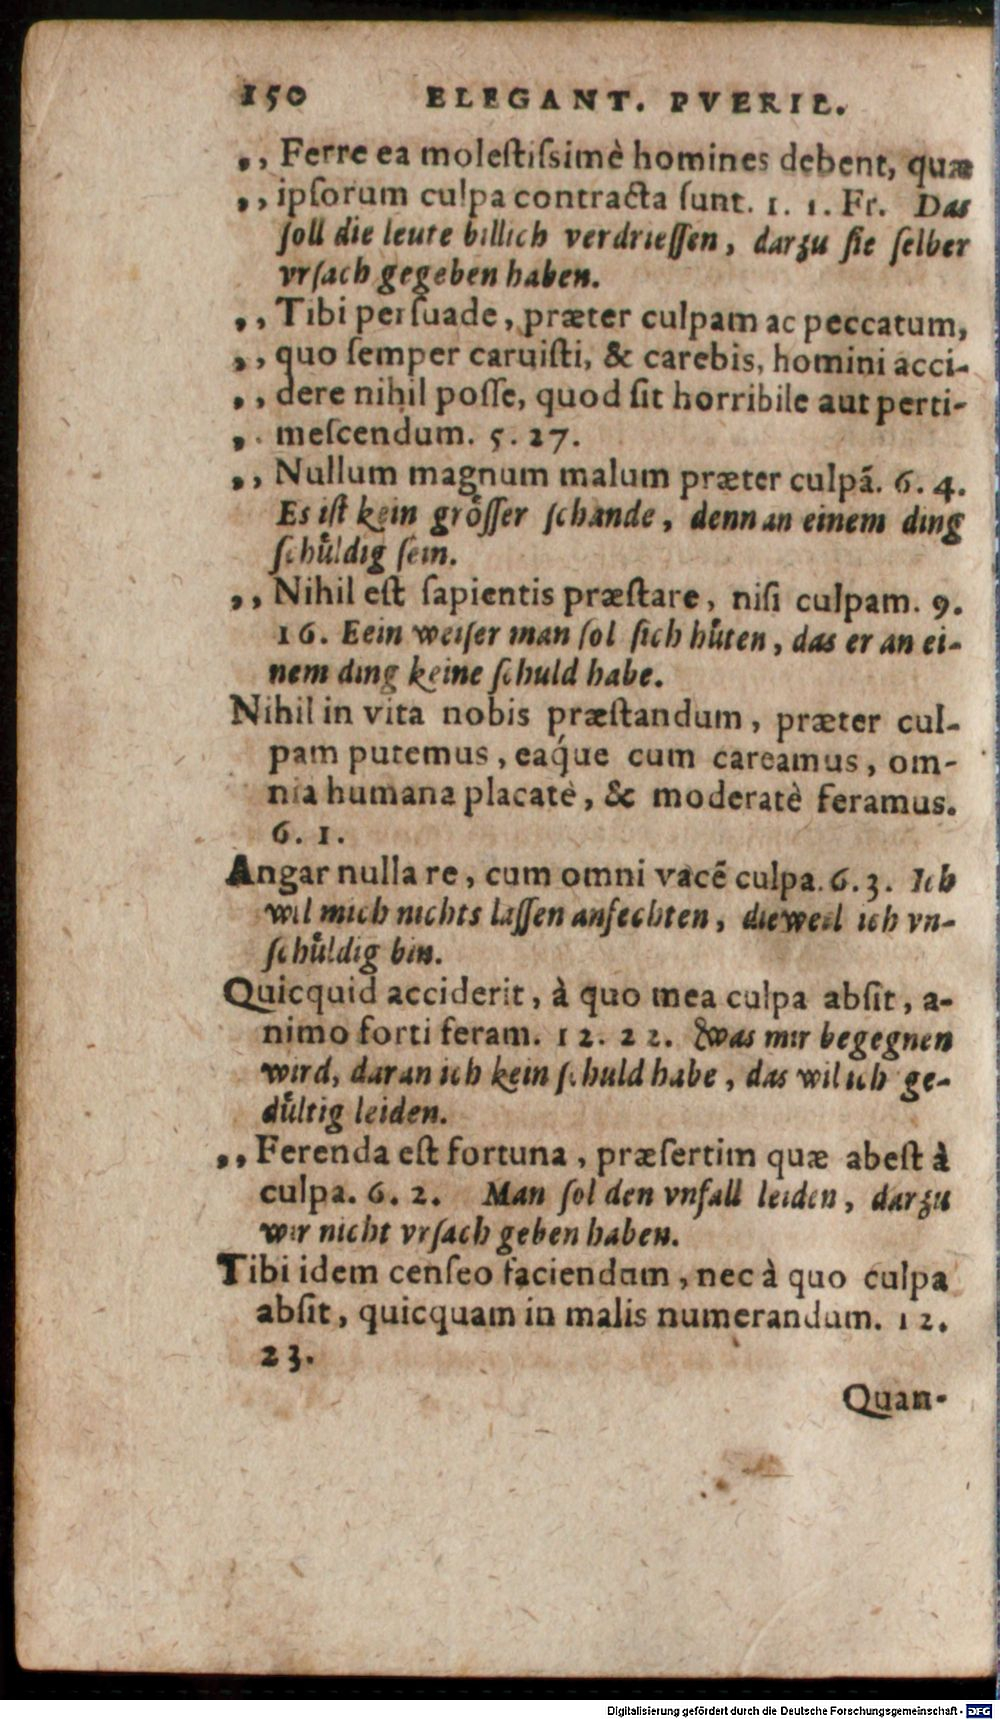 150 ELEGANT. PVERIL.
,, Ferre ea molestiſsimè homines debent, quæ
,, ipſorum culpa contracta ſunt. 1. 1. Fr. Das
ſoll die leute billich verdrieſſen, darzu ſie ſelber
vrſach gegeben haben.
,, Tibi perſuade, præter culpam ac peccatum,
,, quo ſemper caruiſti, & carebis, homini acci-
,, dere nihil poſſe, quod ſit horribile aut perti-
,, meſcendum. 5. 27.
,, Nullum magnum malum præter culpã. 6. 4.
Es iſt kein gröſſer ſchande, denn an einem ding
ſchuͤldig ſein.
,, Nihil eſt ſapientis præſtare, niſi culpam. 9.
16. Eein weiſer man ſol ſich huͤten, das er an ei-
nem ding keine ſchuld habe.
Nihil in vita nobis præſtandum, præter cul-
pam putemus, eaq́ue cum careamus, om-
nia humana placatè, & moderatè feramus.
6. 1.
Angar nulla re, cum omni vacẽ culpa. 6. 3. Ich
wil mich nichts laſſen anfechten, dieweil ich vn-
ſchuͤldig bin.
Quicquid acciderit, à quo mea culpa abſit, a-
nimo forti feram. 12. 22. Was mir begegnen
wird, daran ich kein ſchuld habe, das wil ich ge-
duͤltig leiden.
,, Ferenda eſt fortuna, præſertim quæ abeſt à
culpa. 6. 2. Man ſol den vnfall leiden, darzu
wir nicht vrſach geben haben.
Tibi idem cenſeo faciendum, nec à quo culpa
abſit, quicquam in malis numerandum. 12.
23.
Quan-
Digitalisierung gefördert durch die Deutsche Forschungsgemeinschaft - DFG